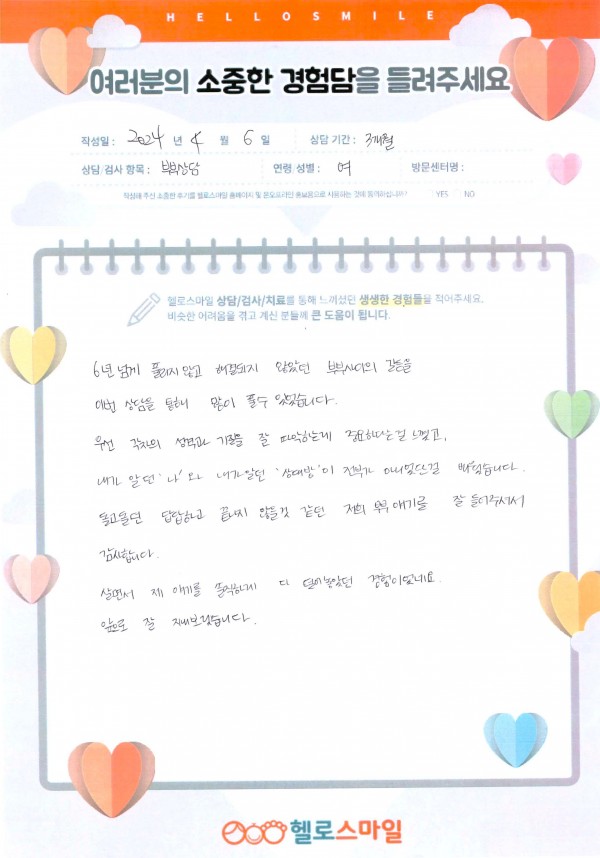 HELLOSMILE
여러분의 소중한 경험담을 들려주세요
작성일 : 2024 년 4 월 6 일 상담 기간 : 3개월
상담/검사 항목 : 부부상담 연령/성별 : 여 방문센터명 :
작성해 주신 소중한 후기를 헬로스마일 홈페이지 및 온오프라인 홍보용으로 사용하는 것에 동의하십니까? YES NO
헬로스마일 상담/검사/치료를 통해 느끼셨던 생생한 경험들을 적어주세요.
비슷한 어려움을 겪고 계신 분들께 큰 도움이 됩니다.
6년 넘게 풀리지 않고 해결되지 않았던 부부사이의 갈등을
이번 상담을 통해서 많이 풀수 있었습니다.
우선 각자의 성격과 기질을 잘 파악하는게 중요하다는걸 느꼈고,
내가 알던 '나'와 내가 알던 '상대방'이 전부가 아니었단걸 배웠습니다.
돌고돌면 답답하고 끝나지 않을것 같던 저희 부부 얘기를 잘 들어주셔서
감사합니다.
살면서 제 얘기를 솔직하게 다 털어놓았던 경험이었네요.
앞으로 잘 지내보겠습니다.
헬로스마일